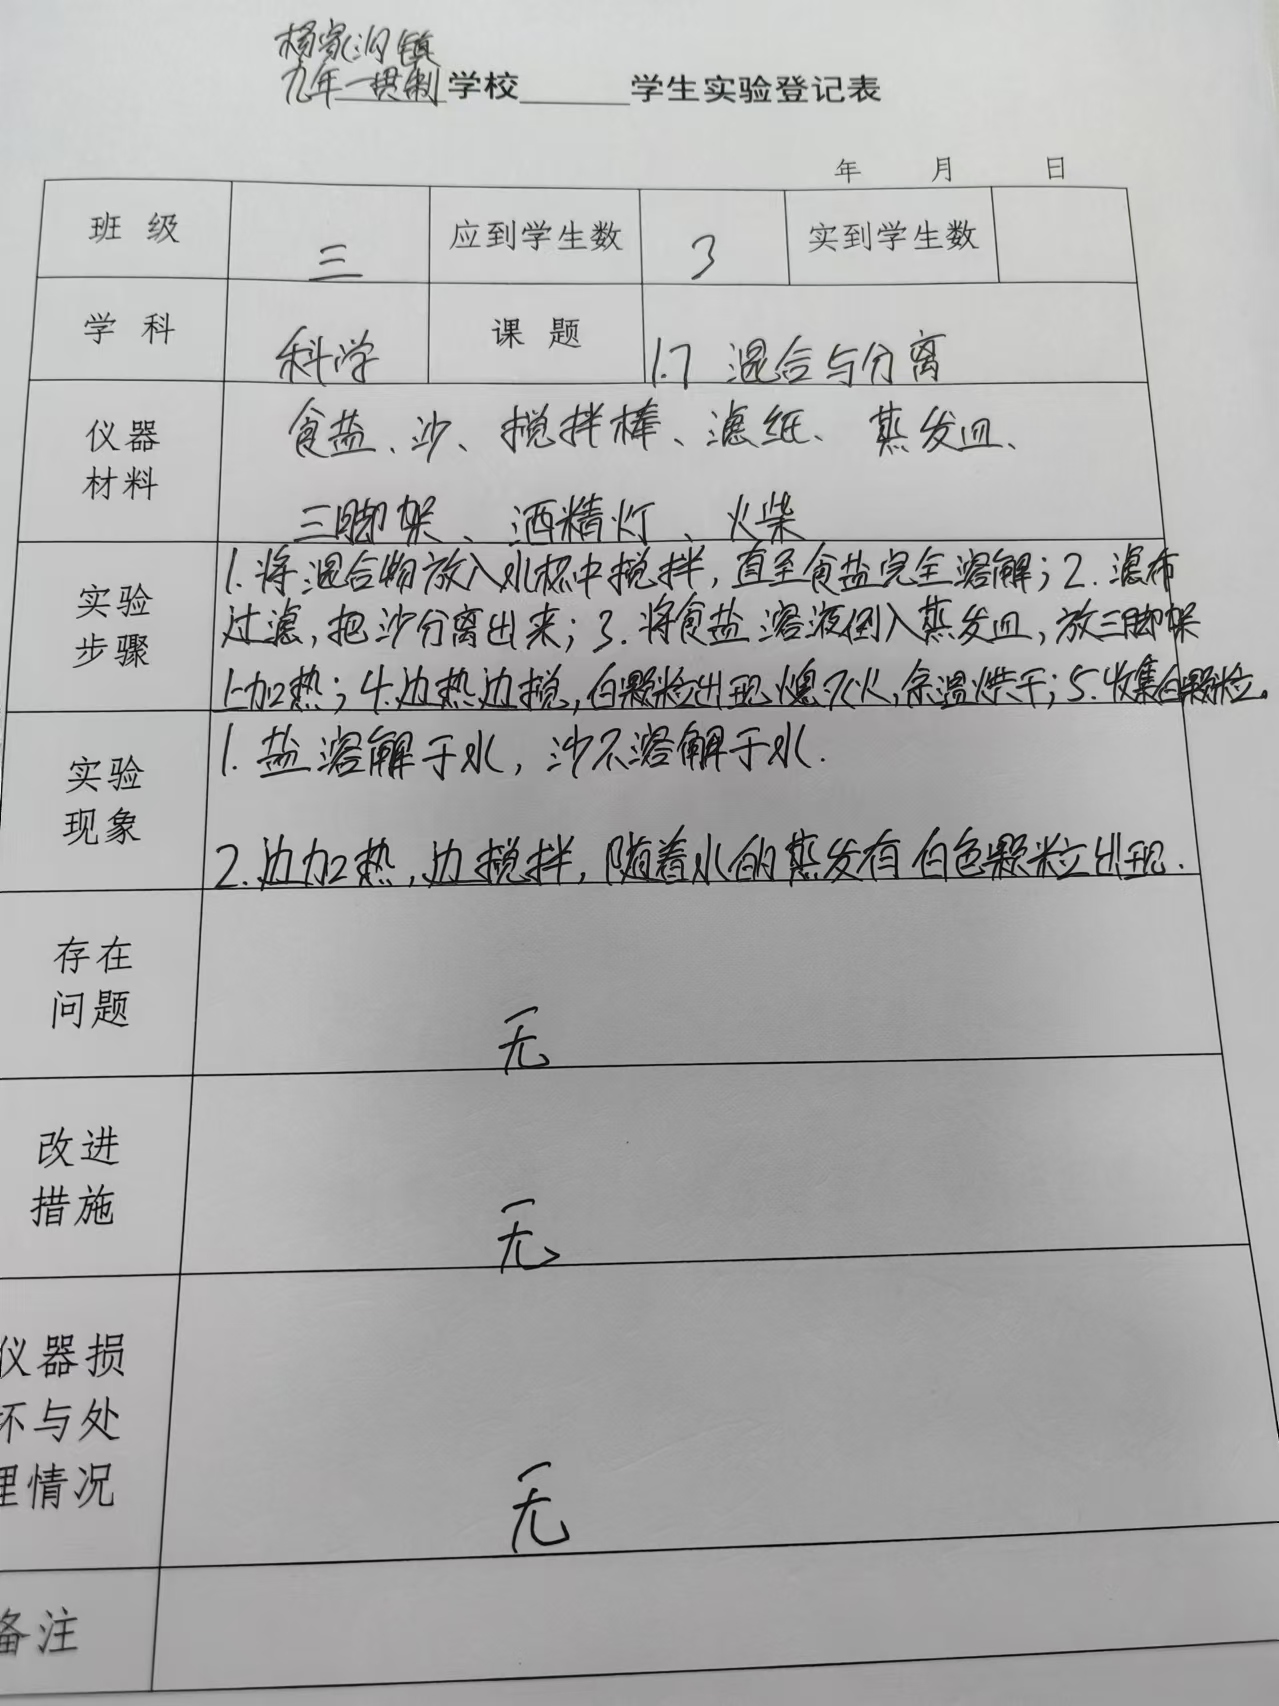 杨家沟镇
九年一贯制学校______学生实验登记表
年 月 日
班 级 三 应到学生数 3 实到学生数
学 科 科学 课 题 1.7 混合与分离
仪器
材料
食盐、沙、搅拌棒、滤纸、蒸发皿、
三脚架、酒精灯、火柴
实验
步骤
1.将混合物放入水杯中搅拌,直至食盐完全溶解;2.滤布
过滤,把沙分离出来;3.将食盐溶液倒入蒸发皿,放三脚架
上加热;4.边热边搅,白颗粒出现熄灭火,余温烘干;5.收集白颗粒。
实验
现象
1.盐溶解于水,沙不溶解于水.
2.边加热,边搅拌,随着水的蒸发有白色颗粒出现.
存在
问题
无
改进
措施
无
仪器损
坏与处
理情况
无
备注